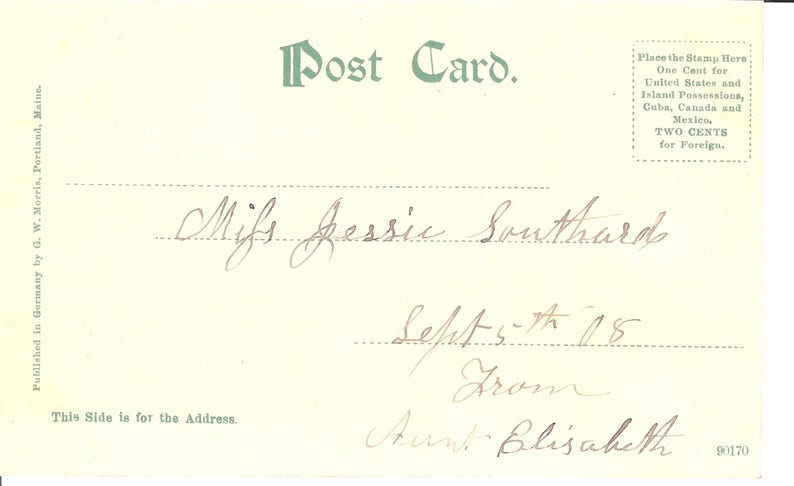 Post Card.
Place the Stamp Here
One Cent for
United States and
Island Possessions,
Cuba, Canada and
Mexico.
TWO CENTS
for Foreign.
Published in Germany by G. W. Morris, Portland, Maine.
Miss Jessie Southard
Sept 5th '08
From
Aunt Elisabeth
This Side is for the Address.
90170